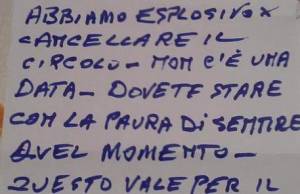 ABBIAMO ESPLOSIVO X
CANCELLARE IL
CIRCOLO - NON C'È UNA
DATA - DOVETE STARE
CON LA PAURA DI SENTIRE
QUEL MOMENTO -
QUESTO VALE PER IL